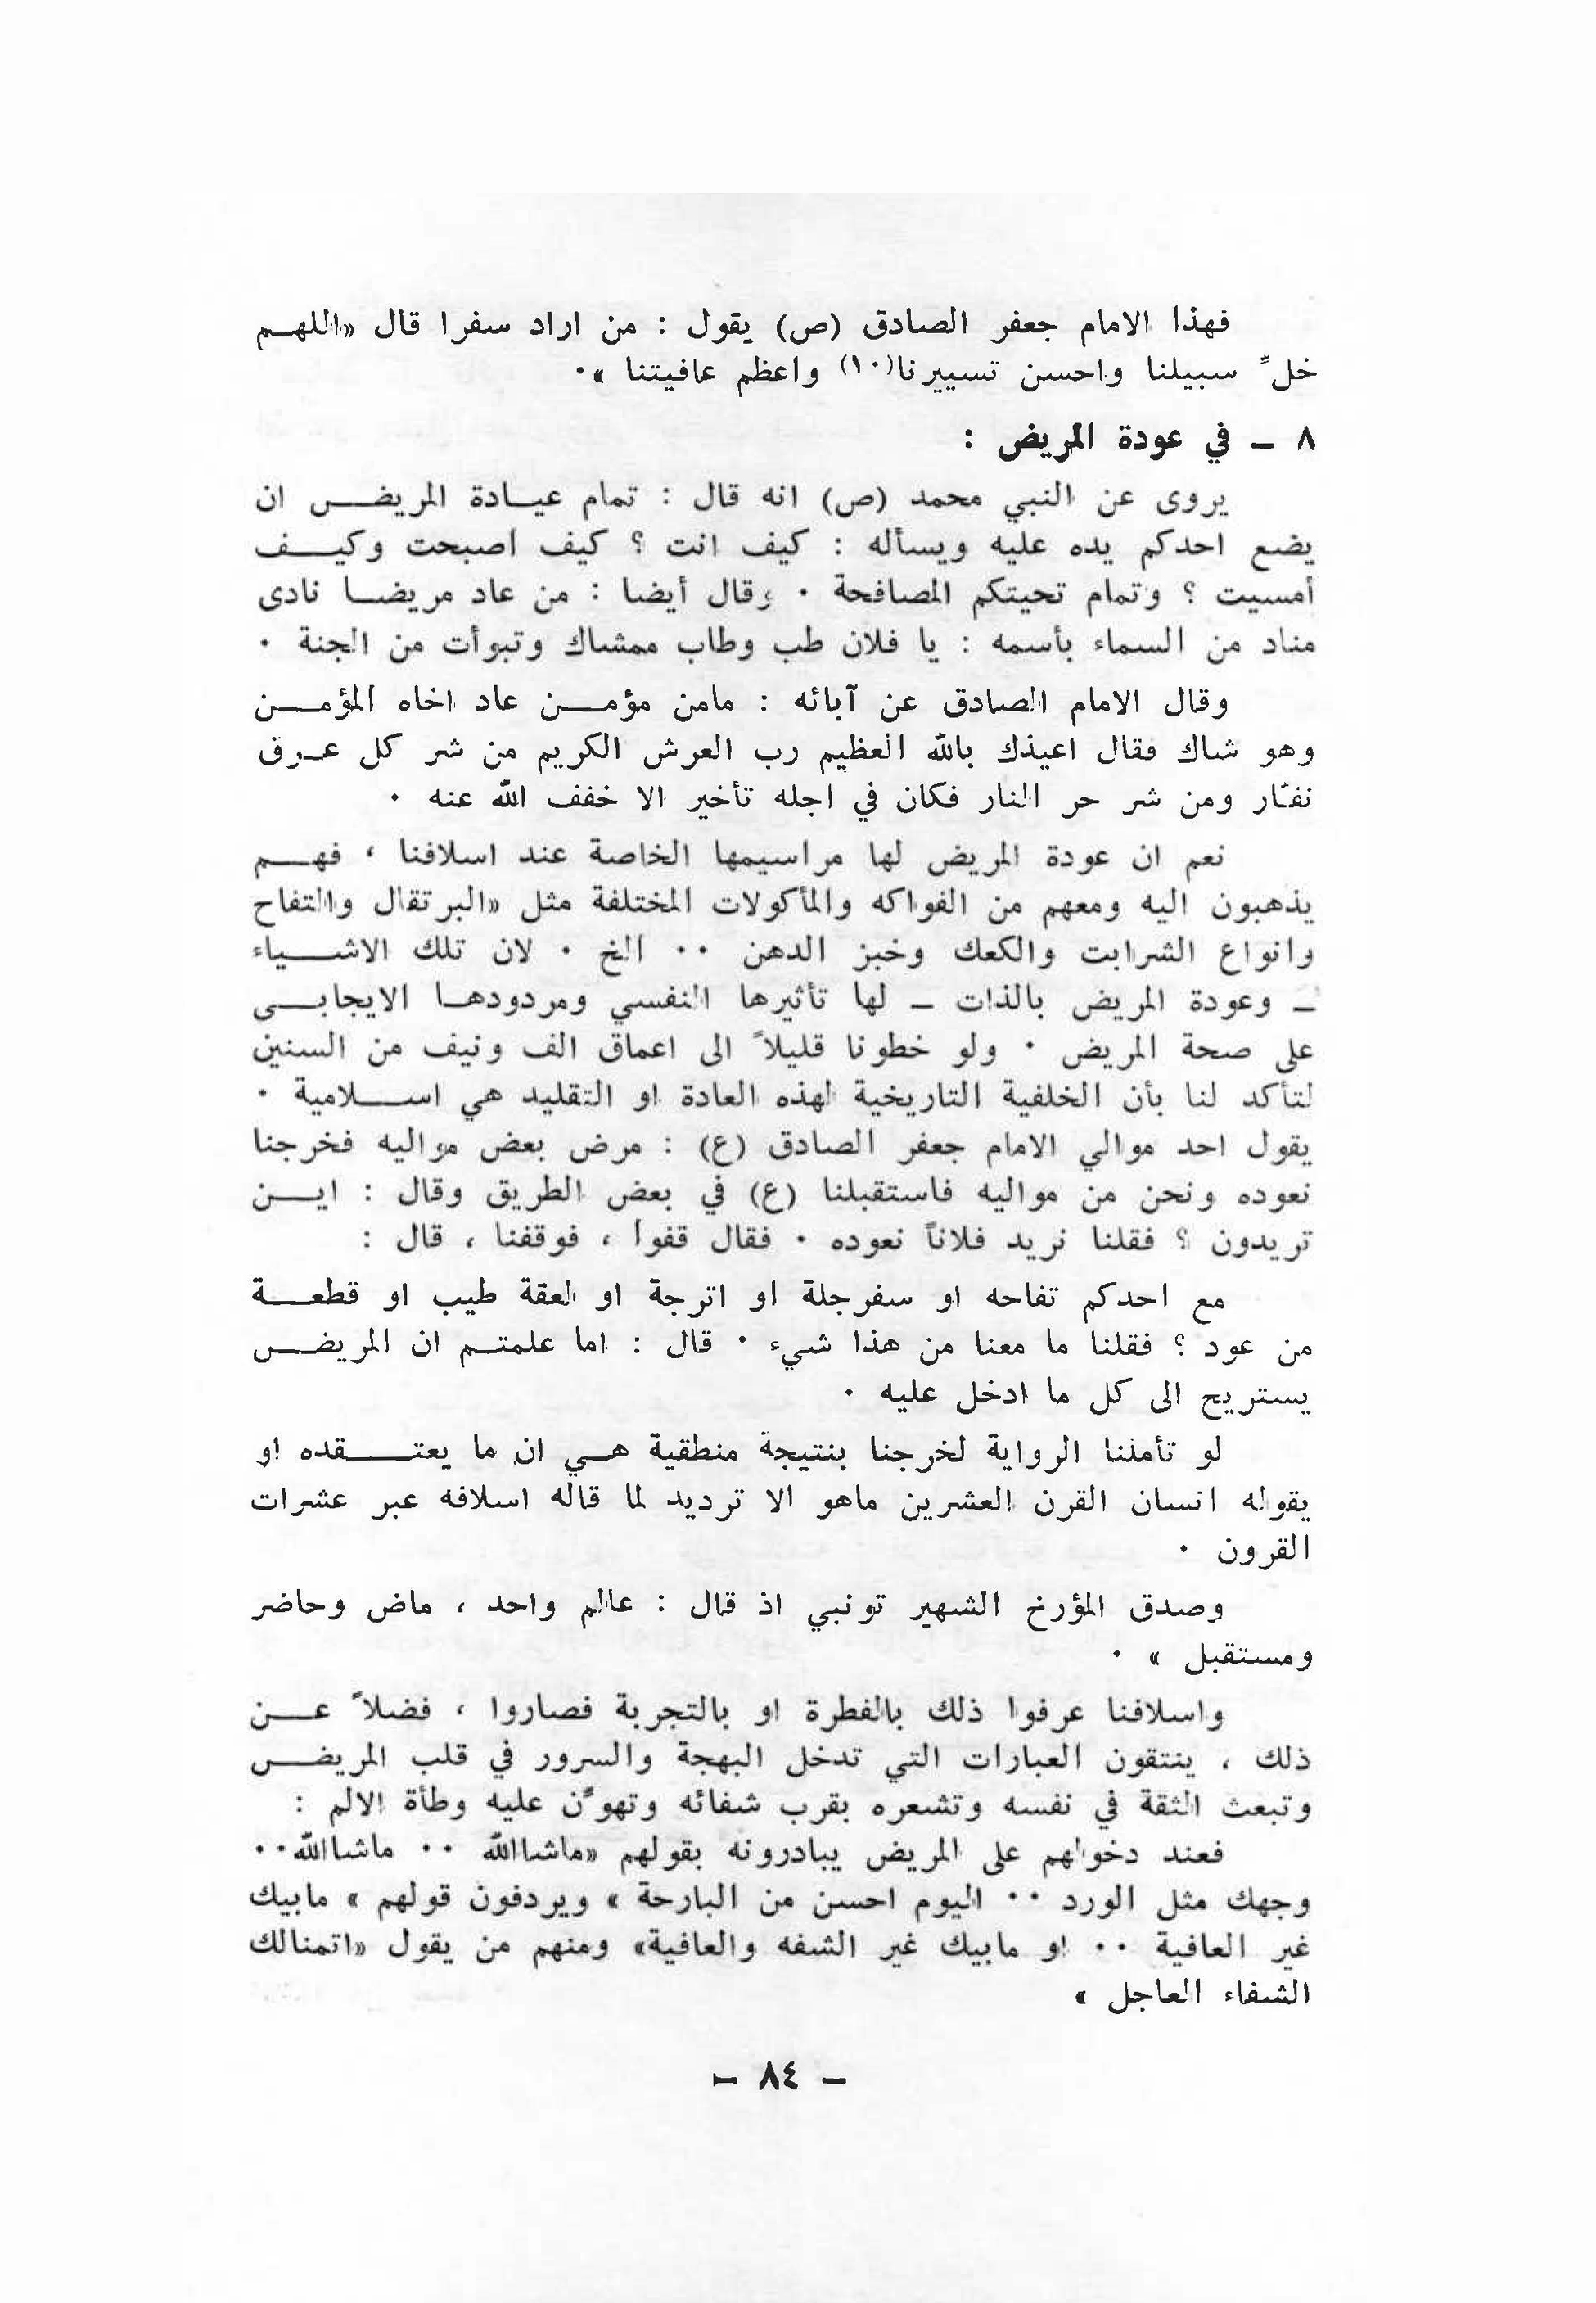 فهذا الامام جعفر الصادق (ص) يقول : من اراد سفرا قال «اللهـم
خلِّ سبيلنا واحسن تسييرنا(١٠) واعظم عافيتنا »٠
٨ ـ في عودة المريض :
يروى عن النبي محمد (ص) انه قال : تمام عيـادة المريـض ان
يضع احدكم يده عليه ويسأله : كيف انت ؟ كيف اصبحت وكيـف
أمسيت ؟ وتمام تحيتكم المصافحة ٠ وقال أيضا : من عاد مريضـا نادى
مناد من السماء بأسمه : يا فلان طب وطاب ممشاك وتبوأت من الجنة ٠
وقال الامام الصادق عن آبائه : مامن مؤمـن عاد اخاه المؤمـن
وهو شاك فقال اعيذك بالله العظيم رب العرش الكريم من شر كل عـرق
نفّار ومن شر حر النار فكان في اجله تأخير الا خفف الله عنه ٠
نعم ان عودة المريض لها مراسيمها الخاصة عند اسلافنا ، فهـم
يذهبون اليه ومعهم من الفواكه والمأكولات المختلفة مثل «البرتقال والتفاح
وانواع الشرابت والكعك وخبز الدهن ٠٠ الخ ٠ لان تلك الاشـياء
ـ وعودة المريض بالذات ـ لها تأثيرها النفسي ومردودهـا الايجابـي
على صحة المريض ٠ ولو خطونا قليلاً الى اعماق الف ونيف من السنين
لتأكد لنا بأن الخلفية التاريخية لهذه العادة او التقليد هي اسـلامية ٠
يقول احد موالي الامام جعفر الصادق (ع) : مرض بعض مواليه فخرجنا
نعوده ونحن من مواليه فاستقبلنا (ع) في بعض الطريق وقال : ايـن
تريدون ؟ فقلنا نريد فلاناً نعوده ٠ فقال قفوا ، فوقفنا ، قال :
مع احدكم تفاحه او سفرجلة او اترجة او لعقة طيب او قطعـة
من عود ؟ فقلنا ما معنا من هذا شيء ٠ قال : اما علمتـم ان المريـض
يستريح الى كل ما ادخل عليه ٠
لو تأملنا الرواية لخرجنا بنتيجة منطقية هـي ان ما يعتـقده او
يقوله انسان القرن العشرين ماهو الا ترديد لما قاله اسلافه عبر عشرات
القرون ٠
وصدق المؤرخ الشهير تونبي اذ قال : عالم واحد ، ماض وحاضر
ومستقبل » ٠
واسلافنا عرفوا ذلك بالفطرة او بالتجربة فصاروا ، فضلاً عـن
ذلك ، ينتقون العبارات التي تدخل البهجة والسرور في قلب المريـض
وتبعث الثقة في نفسه وتشعره بقرب شفائه وتهوّن عليه وطأة الالم :
فعند دخولهم على المريض يبادرونه بقولهم «ماشاالله ٠٠ ماشاالله٠٠
وجهك مثل الورد ٠٠ اليوم احسن من البارحة » ويردفون قولهم » مابيك
غير العافية ٠٠ او مابيك غير الشفه والعافية» ومنهم من يقول «اتمنالك
الشفاء العاجل »
ـ ٨٤ ـ